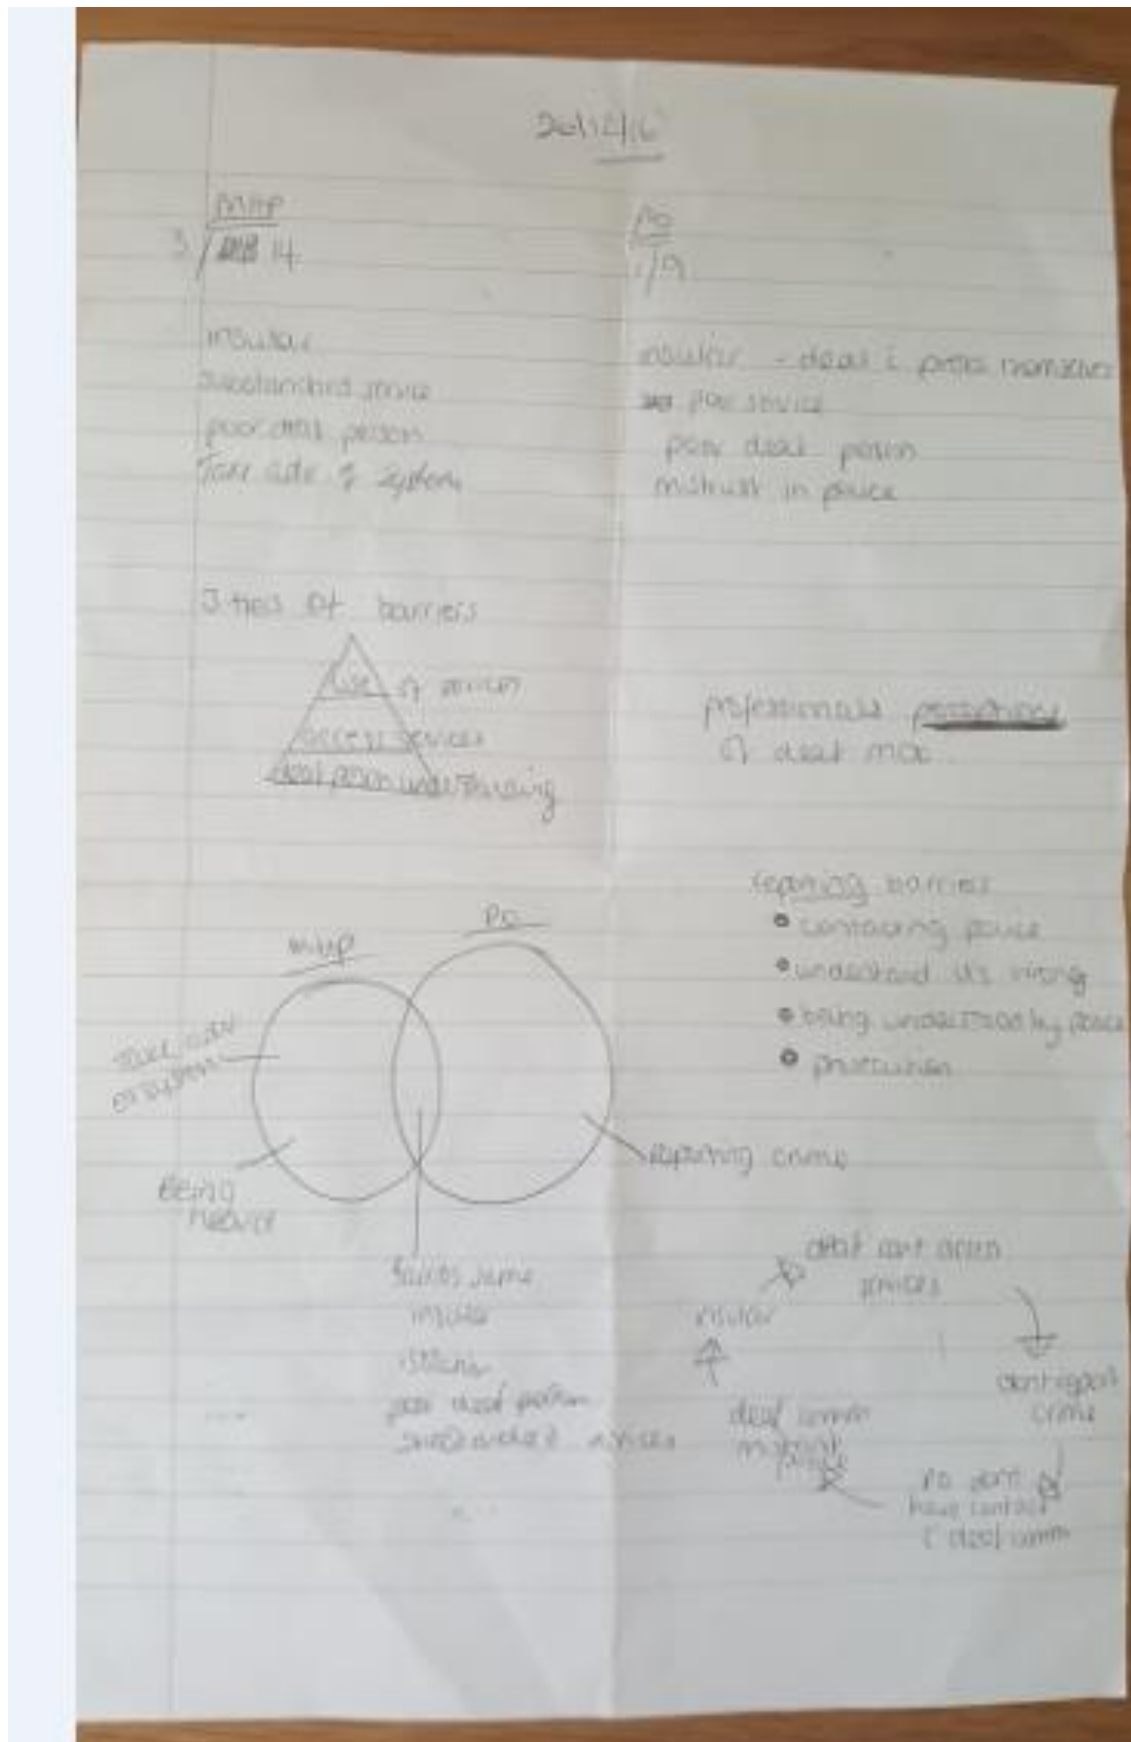 20/12/16
MHP
3/14
insular
substandard service
poor deaf person
Take advt of system
PO
1/9
insular - deal c probs themselves
poor service
poor deaf person
mistrust in police
3 tiers of barriers
Use of services
access services
deaf person understanding
professionals perceptions
of deaf
reporting barriers
contacting police
understand it's wrong
being understood by police
prosecution
MHP
PO
Take advt
of system
Being
reporting crime
same
insular
poor deaf person
deaf cant access
services
dont report
crime
PO dont
have contact
c deaf comm
deaf comm
mistrust
police
insular